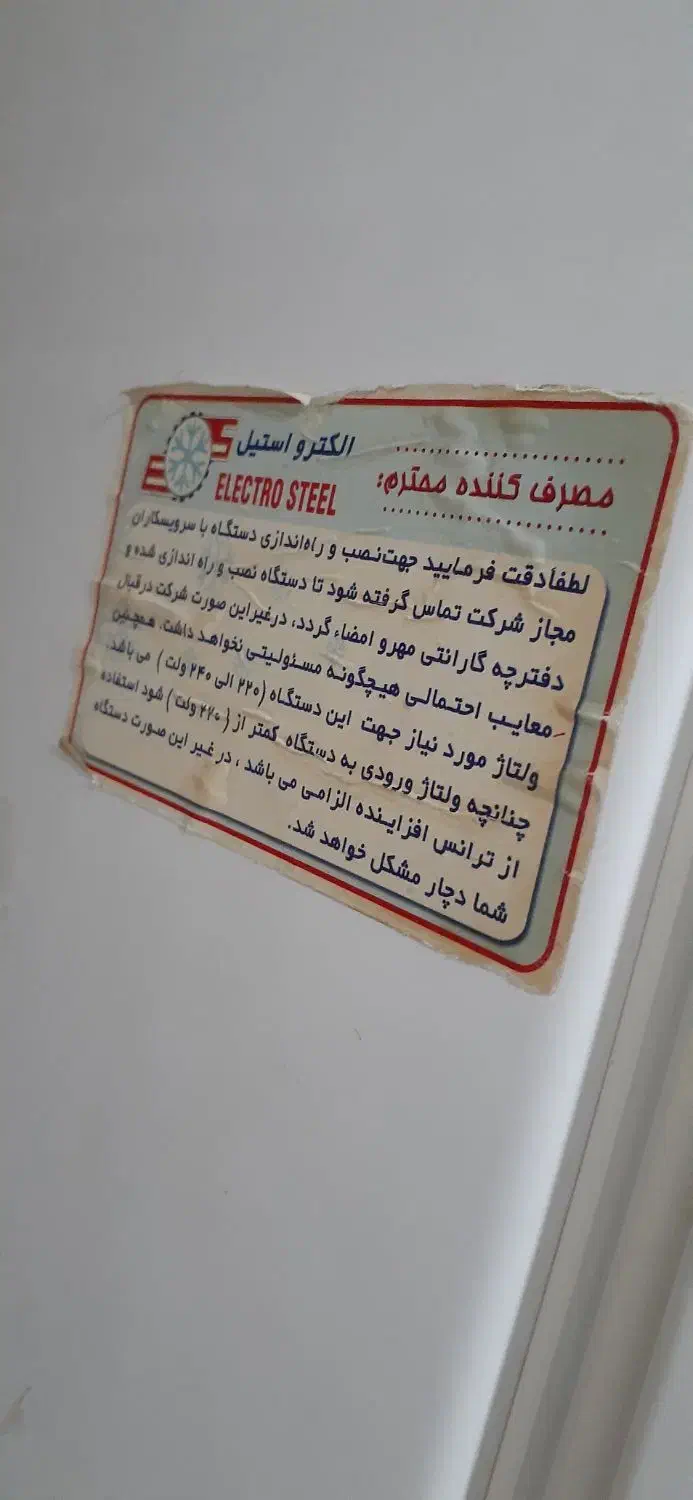 الکترو استیل
ELECTRO STEEL
ES
مصرف کننده محترم:
لطفاًدقت فرمایید جهت‌نصب و راه‌اندازی دستگاه با سرویسکاران
مجاز شرکت تماس گرفته شود تا دستگاه نصب و راه اندازی شده و
دفترچه گارانتی مهرو امضاء گردد، درغیراین صورت شرکت درقبال
معایب احتمالی هیچگونه مسئولیتی نخواهد داشت. همچنین
ولتاژ مورد نیاز جهت این دستگاه (۲۲۰ الی ۲۴۰ ولت) می باشد.
چنانچه ولتاژ ورودی به دستگاه کمتر از (۲۲۰ ولت) شود استفاده
از ترانس افزاینده الزامی می باشد، در غیر این صورت دستگاه
شما دچار مشکل خواهد شد.